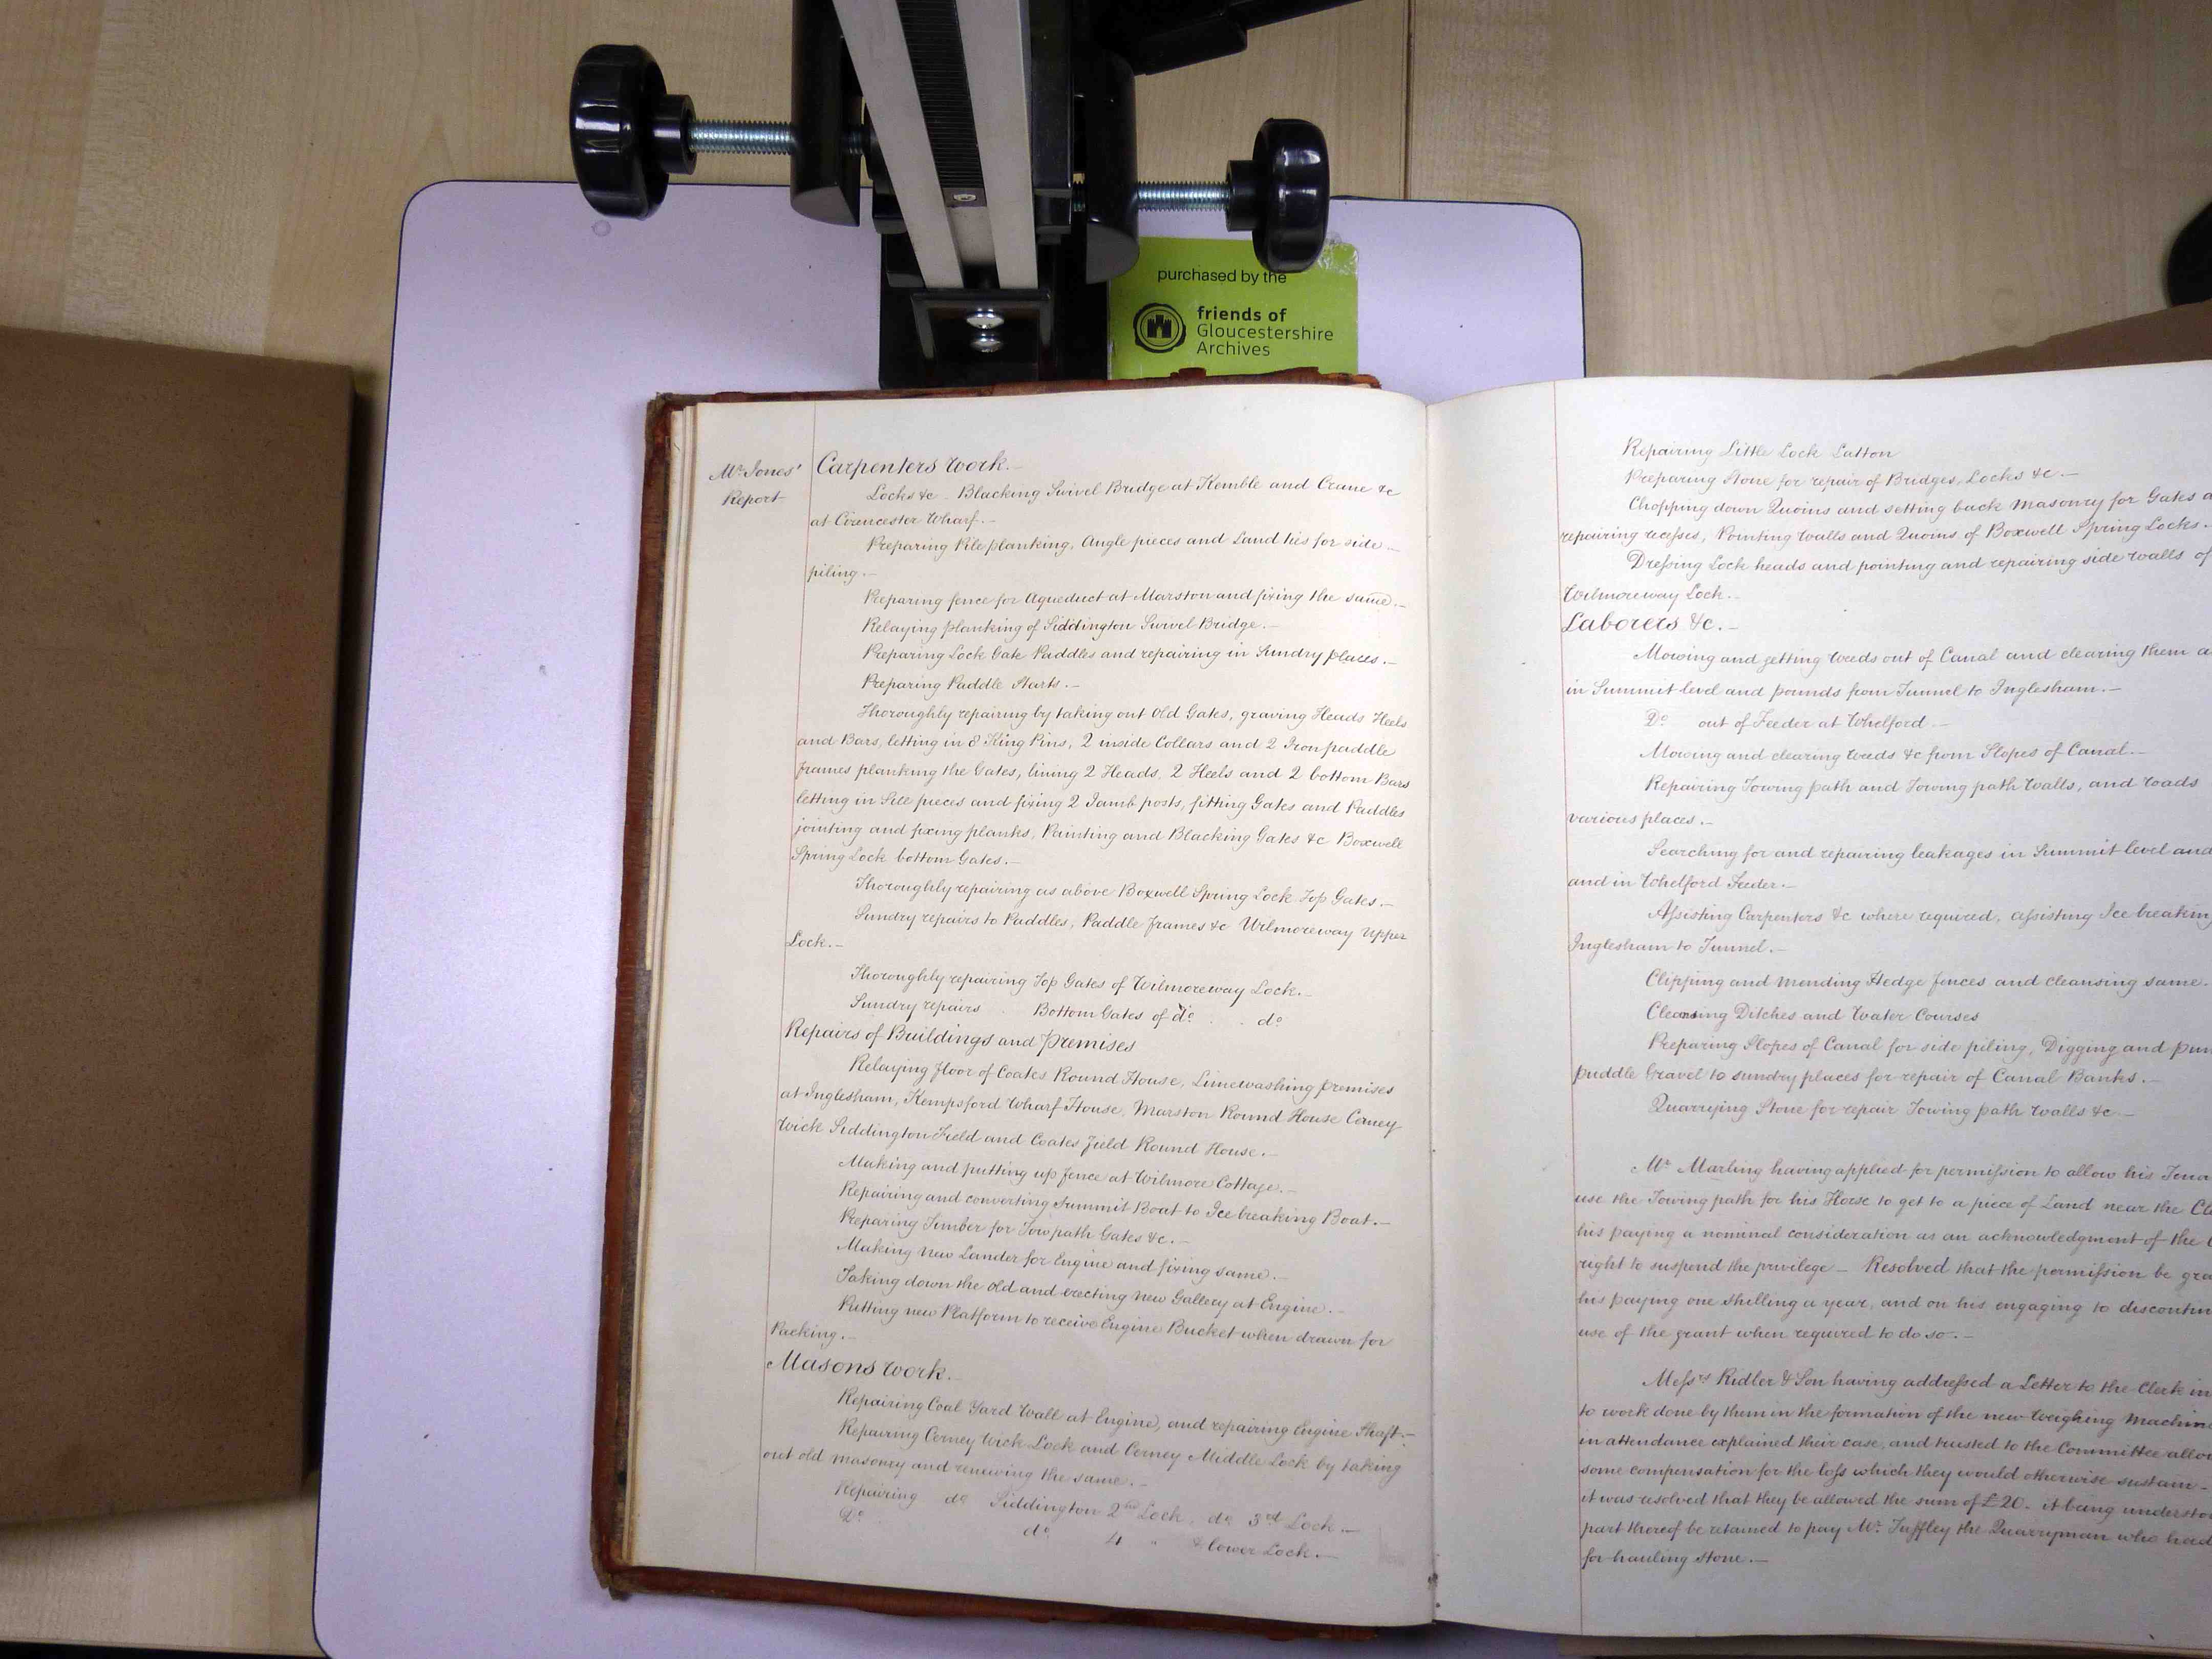 purchased by the
friends of
Gloucestershire
Archives
Mr. Jones'
Report
Carpenters Work.-
Locks &c. Blacking Swivel Bridge at Kemble and Crane &c
at Cirencester Wharf.-
Preparing Pile planking, Angle pieces and Land ties for side
piling.-
Preparing fence for Aqueduct at Marston and fixing the same.-
Relaying planking of Siddington Swivel Bridge.-
Preparing Lock Gate Paddles and repairing in Sundry places.-
Preparing Paddle Starts.-
Thoroughly repairing by taking out Old Gates, graving Heads Heels
and Bars, letting in 8 King Pins, 2 inside Collars and 2 Iron paddle
frames planking the Gates, lining 2 Heads, 2 Heels and 2 bottom Bars
letting in Sill pieces and fixing 2 Jamb posts, fitting Gates and Paddles
jointing and fixing planks, Painting and Blacking Gates &c Boxwell
Spring Lock bottom Gates.-
Thoroughly repairing as above Boxwell Spring Lock Top Gates.-
Sundry repairs to Paddles, Paddle frames &c Wilmoreway Upper
Lock.-
Thoroughly repairing Top Gates of Wilmoreway Lock.-
Sundry repairs . Bottom Gates of do. . . do
Repairs of Buildings and Premises
Relaying floor of Coates Round House, Limewashing premises
at Inglesham, Kempsford Wharf House, Marston Round House Cerney
Wick Siddington Field and Coates Field Round House.-
Making and putting up fence at Wilmore Cottage.-
Repairing and converting Summit Boat to Ice breaking Boat.-
Preparing Timber for Towpath Gates &c.-
Making new Lander for Engine and fixing same.-
Taking down the old and erecting new Gallery at Engine.-
Putting new Platform to receive Engine Bucket when drawn for
Packing.-
Masons Work.-
Repairing Coal Yard Wall at Engine, and repairing Engine Shaft.-
Repairing Cerney Wick Lock and Cerney Middle Lock by taking
out old masonry and renewing the same.-
Repairing do. Siddington 2nd Lock, do. 3rd Lock.-
Do. do. 4 " & lower Lock.-
Repairing Little Lock Latton
Preparing Stone for repair of Bridges, Locks &c.-
Chopping down Quoins and setting back Masonry for Gates
repairing recesses, Pointing Walls and Quoins of Boxwell Spring Locks.
Dressing Lock heads and pointing and repairing side walls of
Wilmoreway Lock.-
Laborers &c.-
Mowing and getting Weeds out of Canal and clearing them
in Summit level and pounds from Tunnel to Inglesham.-
Do. out of Feeder at Whelford.-
Mowing and clearing Weeds &c from Slopes of Canal.-
Repairing Towing path and Towing path Walls, and roads
various places.-
Searching for and repairing leakages in Summit level and
and in Whelford Feeder.-
Assisting Carpenters &c where required, assisting Ice
Inglesham to Tunnel.-
Clipping and mending Hedge fences and cleansing same.
Cleansing Ditches and Water Courses
Preparing Slopes of Canal for side piling, Digging and
puddle Gravel to sundry places for repair of Canal Banks.-
Quarrying Stone for repair Towing path Walls &c.-
Mr. Marling having applied for permission to allow his
use the Towing path for his Horse to get to a piece of Land near the
his paying a nominal consideration as an acknowledgment of the
right to suspend the privilege - Resolved that the permission be
his paying one shilling a year, and on his engaging to
use of the grant when required to do so.-
Messrs Ridler & Son having addressed a Letter to the Clerk in
to work done by them in the formation of the new Weighing
in attendance explained their case, and trusted to the Committee
some compensation for the loss which they would otherwise sustain -
it was resolved that they be allowed the sum of £20. it being
part thereof be retained to pay Mr. Tuffley the Quarryman who
for hauling Stone.-